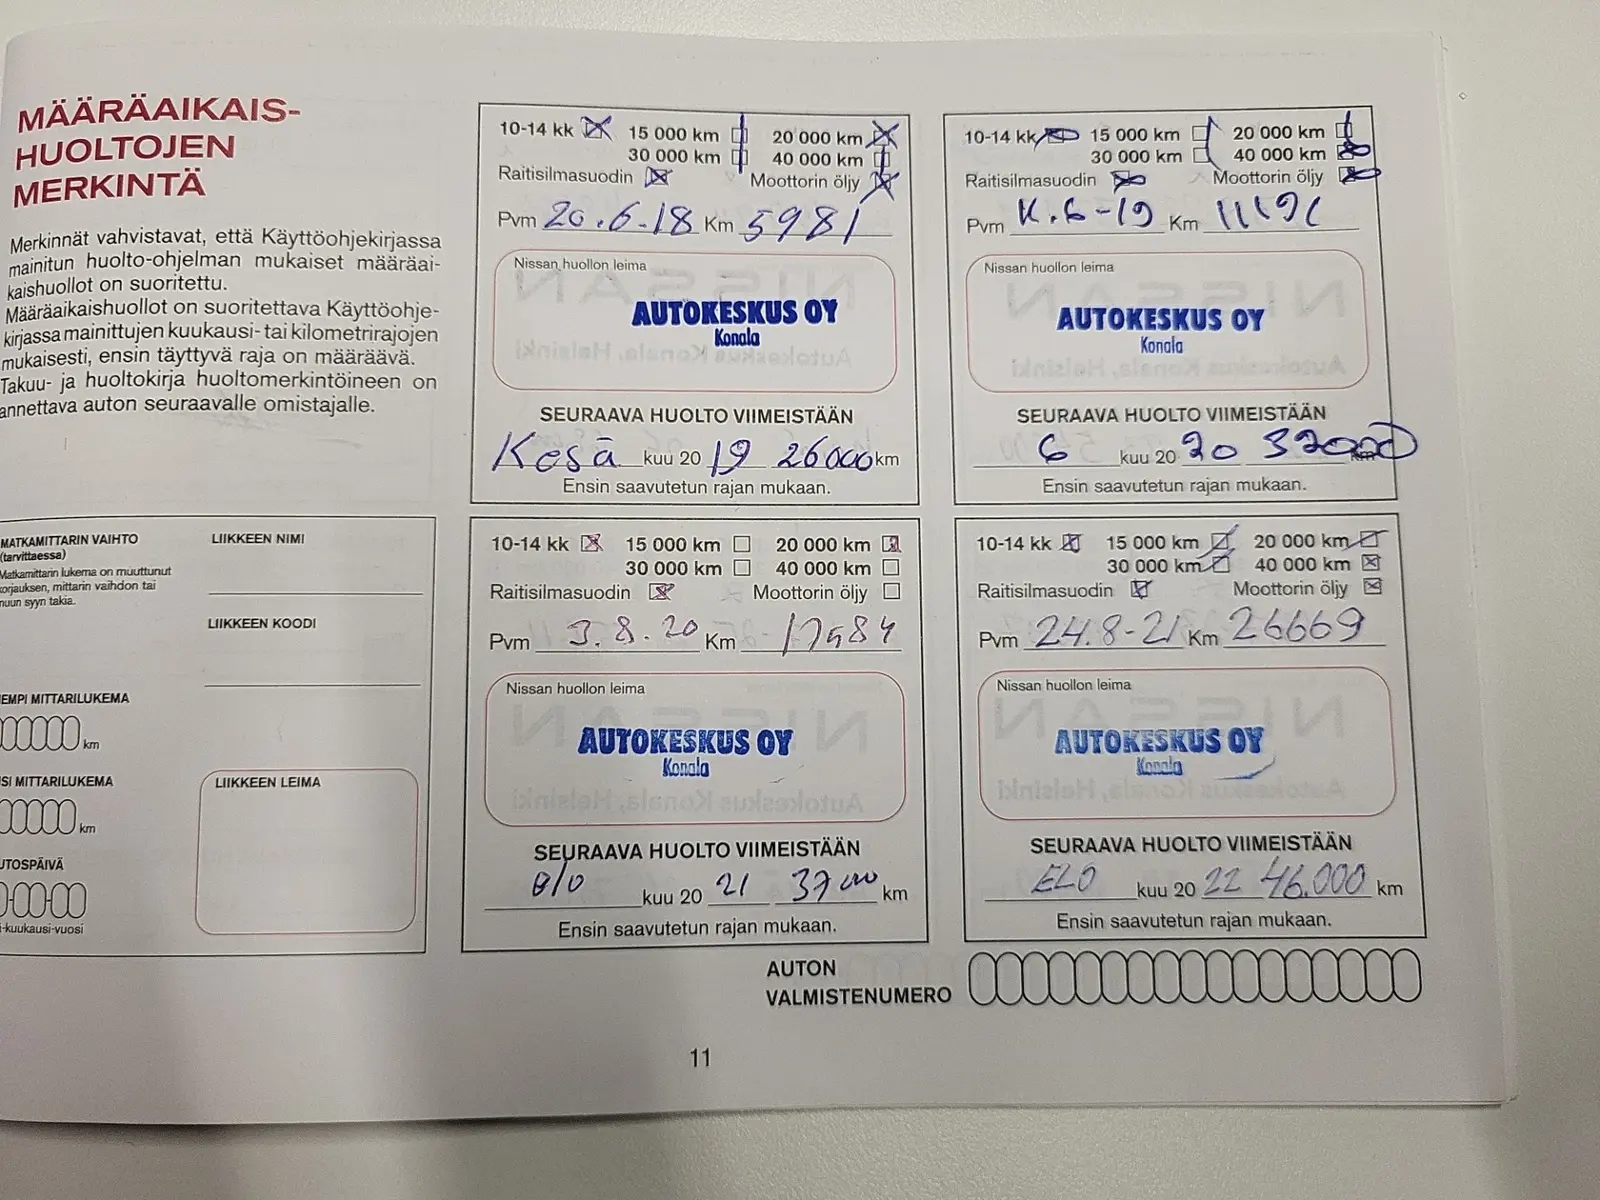 MÄÄRÄAIKAIS-
HUOLTOJEN
MERKINTÄ
Merkinnät vahvistavat, että Käyttöohjekirjassa
mainitun huolto-ohjelman mukaiset määräai-
kaishuollot on suoritettu.
Määräaikaishuollot on suoritettava Käyttöohje-
kirjassa mainittujen kuukausi- tai kilometrirajojen
mukaisesti, ensin täyttyvä raja on määräävä.
Takuu- ja huoltokirja huoltomerkintöineen on
annettava auton seuraavalle omistajalle.
MATKAMITTARIN VAIHTO
(tarvittaessa)
Matkamittarin lukema on muuttunut
korjauksen, mittarin vaihdon tai
muun syyn takia.
LIIKKEEN NIMI
LIIKKEEN KOODI
EMPI MITTARILUKEMA
km
SI MITTARILUKEMA
km
UTOSPÄIVÄ
i-kuukausi-vuosi
LIIKKEEN LEIMA
10-14 kk 15 000 km 20 000 km
30 000 km 40 000 km
Raitisilmasuodin Moottorin öljy
Pvm 20.6.18 Km 5981
Nissan huollon leima
AUTOKESKUS OY
Konala
SEURAAVA HUOLTO VIIMEISTÄÄN
Kesä kuu 20 19 26000 km
Ensin saavutetun rajan mukaan.
10-14 kk 15 000 km 20 000 km
30 000 km 40 000 km
Raitisilmasuodin Moottorin öljy
Pvm 6-19 Km
Nissan huollon leima
AUTOKESKUS OY
Konala
SEURAAVA HUOLTO VIIMEISTÄÄN
6 kuu 20 20 32000 km
Ensin saavutetun rajan mukaan.
10-14 kk 15 000 km 20 000 km
30 000 km 40 000 km
Raitisilmasuodin Moottorin öljy
Pvm 3.8.20 Km
Nissan huollon leima
AUTOKESKUS OY
Konala
SEURAAVA HUOLTO VIIMEISTÄÄN
kuu 20 21 37000 km
Ensin saavutetun rajan mukaan.
10-14 kk 15 000 km 20 000 km
30 000 km 40 000 km
Raitisilmasuodin Moottorin öljy
Pvm 24.8-21 Km 26669
Nissan huollon leima
AUTOKESKUS OY
Konala
SEURAAVA HUOLTO VIIMEISTÄÄN
ELO kuu 20 22 46.000 km
Ensin saavutetun rajan mukaan.
AUTON
VALMISTENUMERO
11